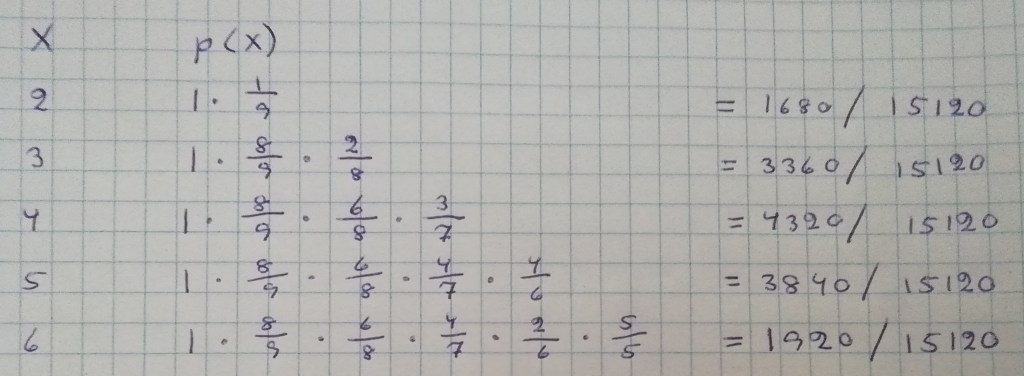 X p(x)
2 1 · 1/9 = 1680 / 15120
3 1 · 8/9 · 2/8 = 3360 / 15120
4 1 · 8/9 · 6/8 · 3/7 = 4320 / 15120
5 1 · 8/9 · 6/8 · 4/7 · 4/6 = 3840 / 15120
6 1 · 8/9 · 6/8 · 4/7 · 2/6 · 5/5 = 1920 / 15120